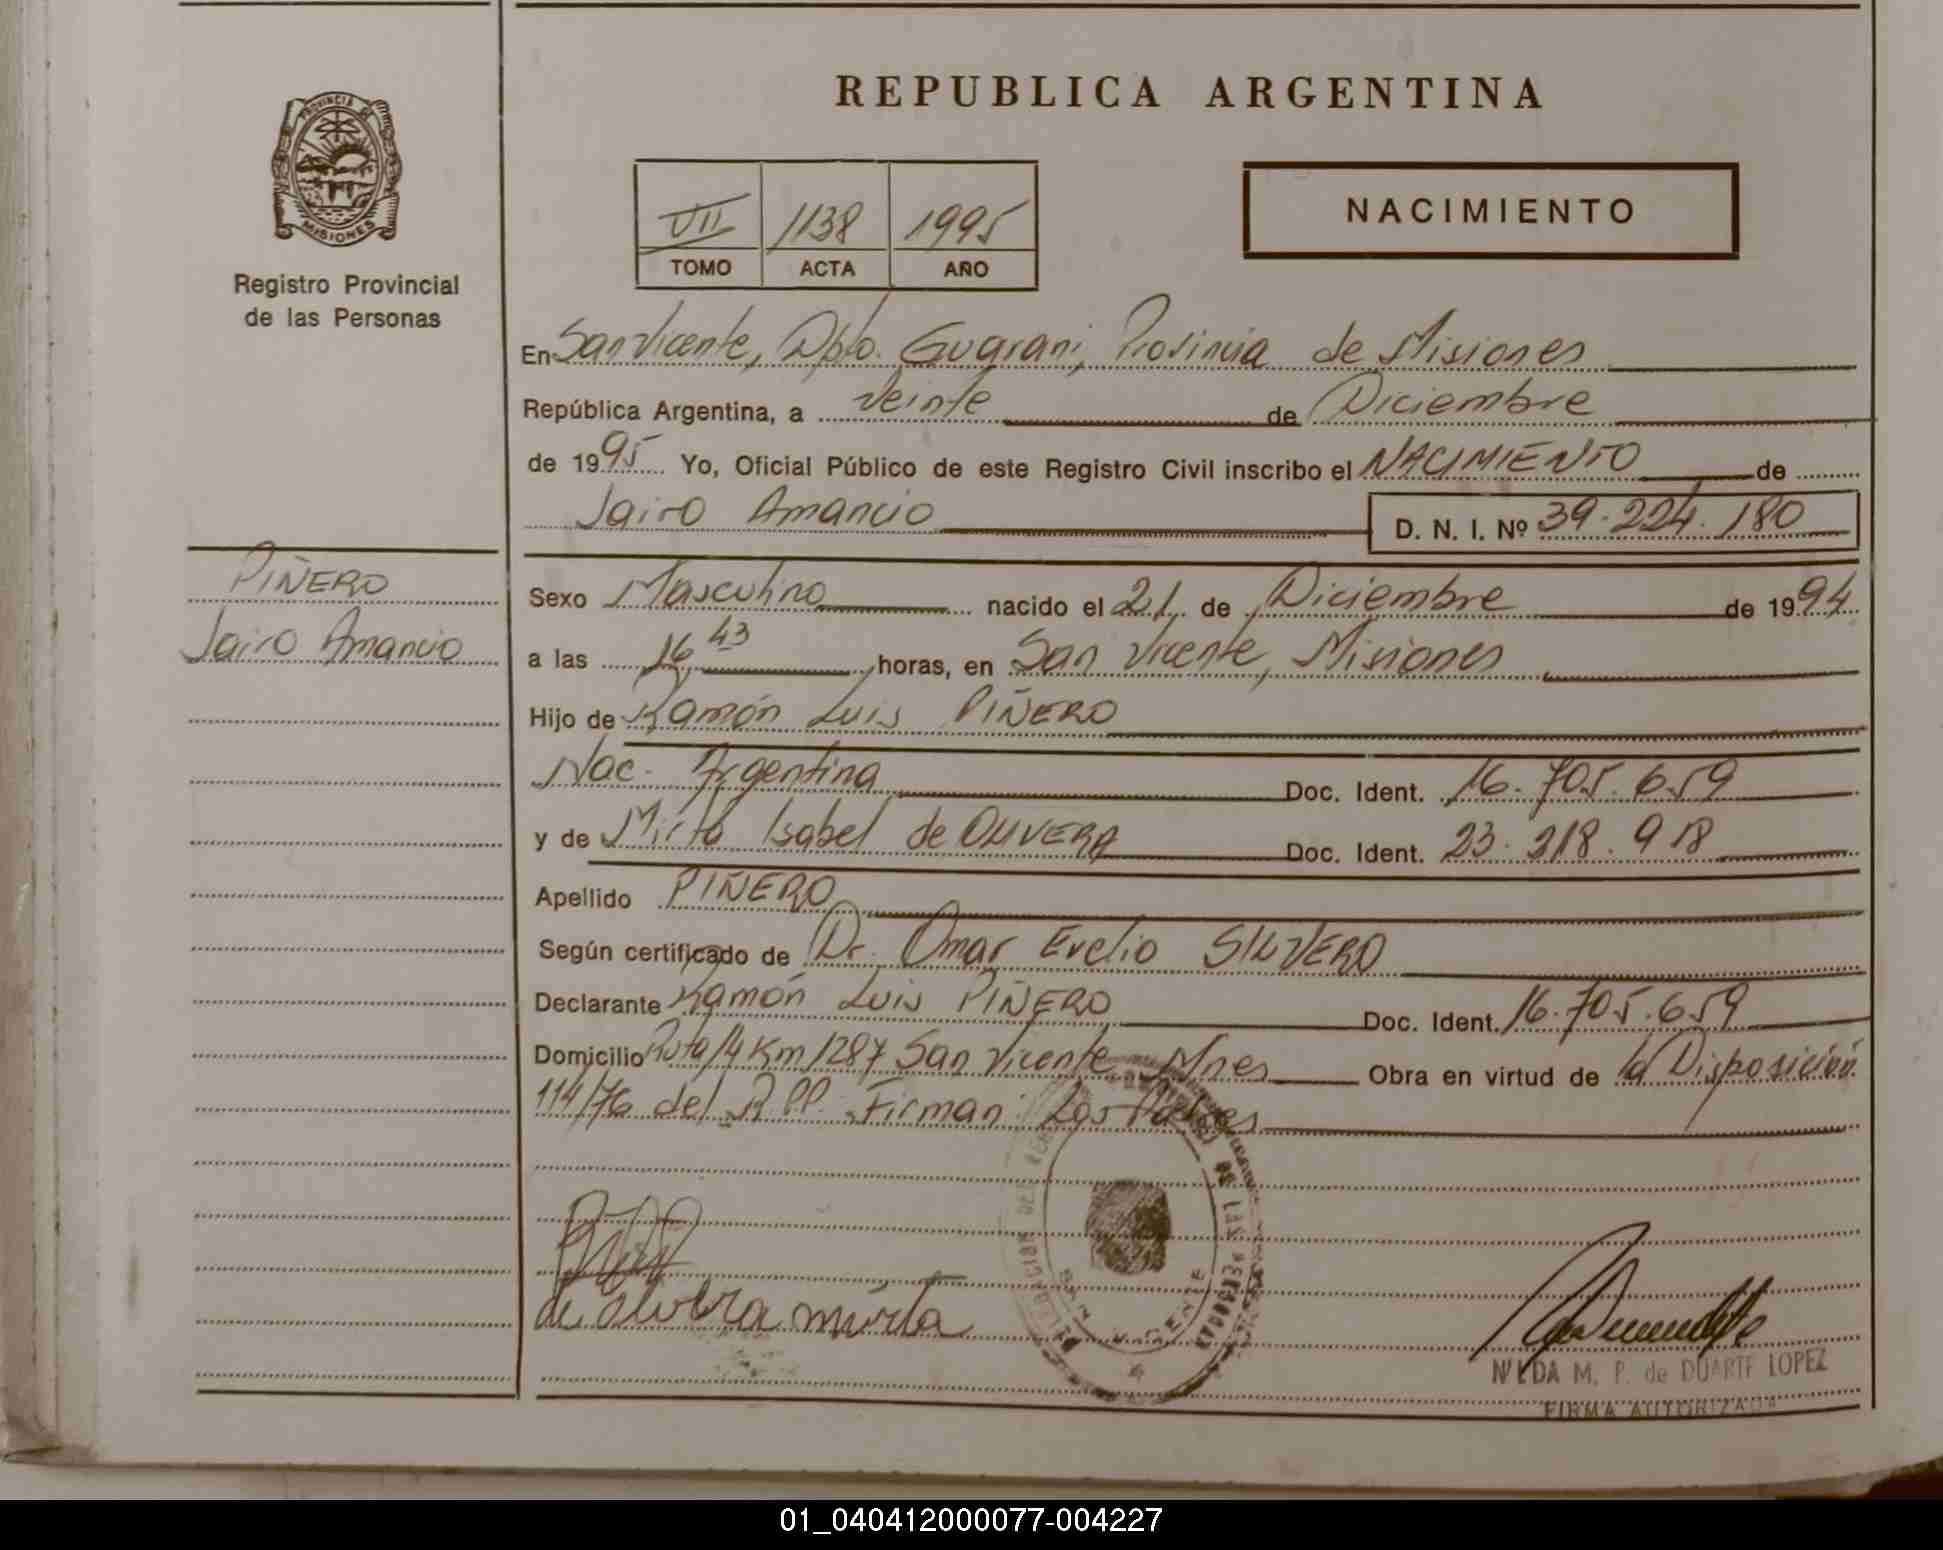 REPUBLICA ARGENTINA
PROVINCIA DE
MISIONES
Registro Provincial
de las Personas
VII 1138 1995
TOMO ACTA AÑO
NACIMIENTO
En San Vicente, Dpto. Guarani, Provincia de Misiones
República Argentina, a veinte de Diciembre
de 1995 Yo, Oficial Público de este Registro Civil inscribo el NACIMIENTO de
Jairo Amancio D. N. I. Nº 39.224.180
PIÑERO
Jairo Amancio
Sexo Masculino nacido el 21 de Diciembre de 1994
a las 16 43 horas, en San Vicente, Misiones
Hijo de Ramón Luis PIÑERO
Nac. Argentina Doc. Ident. 16.705.659
y de Mirta Isabel de OLIVERA Doc. Ident. 23.318.918
Apellido PIÑERO
Según certificado de Dr. Omar Evelio SILVERO
Declarante Ramón Luis PIÑERO Doc. Ident. 16.705.659
Domicilio Ruta 14 Km 1287 San Vicente Mnes Obra en virtud de la Disposición
114/76 del R.P.P. Firman: Los Padres
DELEGACION DEL REG DE LAS PERSONAS
SAN VICENTE
de olivera mirta
NILDA M. P. de DUARTE LOPEZ
FIRMA AUTORIZADA
01_040412000077-004227